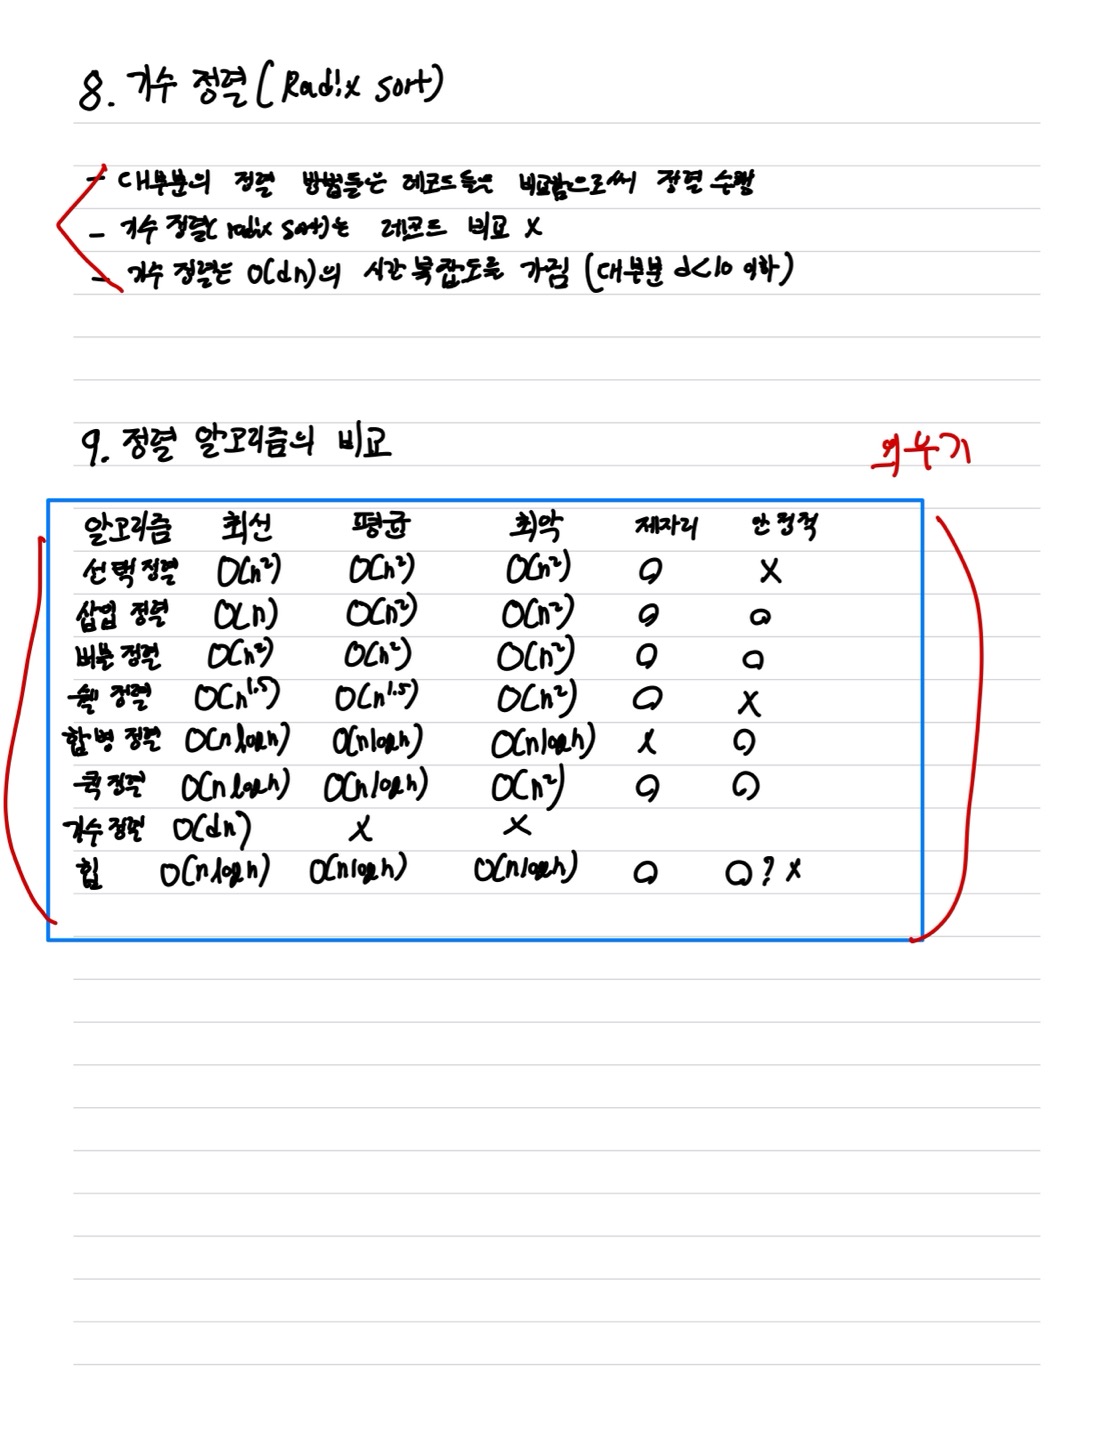 8. 기수 정렬 (Radix sort)
- 대부분의 정렬 방법들은 레코드들을 비교함으로써 정렬 수행
- 기수 정렬(radix sort)는 레코드 비교 X
- 기수 정렬은 O(dn)의 시간 복잡도를 가짐 (대부분 d<10 이하)
9. 정렬 알고리즘의 비교 외우기
알고리즘 최선 평균 최악 제자리 안정적
선택 정렬 O(n²) O(n²) O(n²) O X
삽입 정렬 O(n) O(n²) O(n²) O O
버블 정렬 O(n²) O(n²) O(n²) O O
쉘 정렬 O(n^1.5) O(n^1.5) O(n²) O X
합병 정렬 O(nlogn) O(nlogn) O(nlogn) X O
퀵 정렬 O(nlogn) O(nlogn) O(n²) O O
기수 정렬 O(dn) X X
힙 O(nlogn) O(nlogn) O(nlogn) O O? X